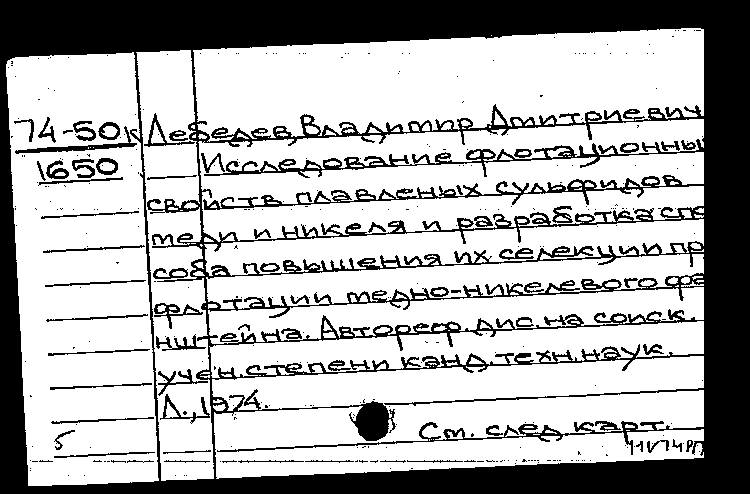 74-50к Лебедев, Владимир Дмитриевич
1650 Исследование флотационны
свойств плавленых сульфидов
меди и никеля и разработка спо
соба повышения их селекции пр
флотации медно-никелевого фа
нштейна. Автореф. дис. на соиск.
учен. степени канд. техн. наук.
Л., 1974.
5 См. след. карт.